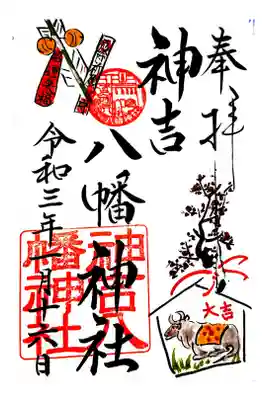 奉拝
神吉
八幡神社
令和三年一月十六日
神吉八
幡神社
大吉